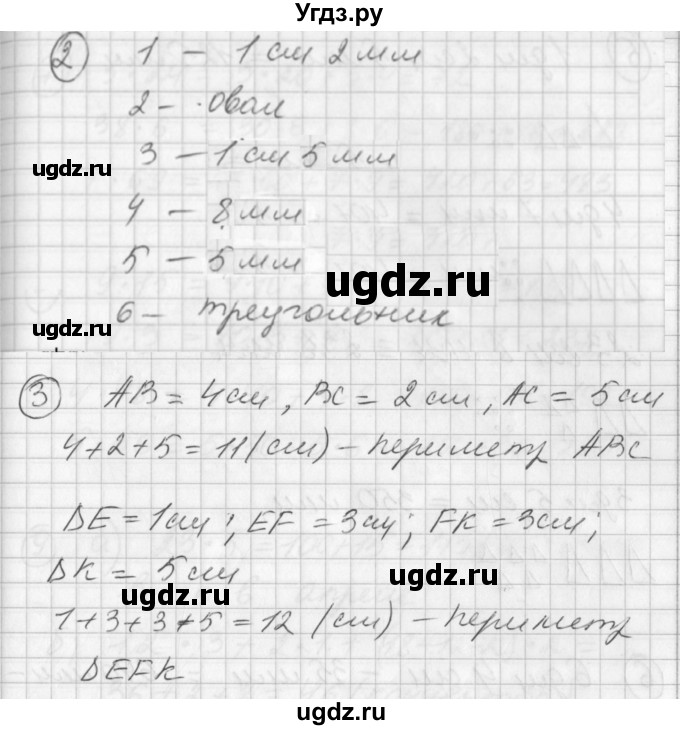 Угдз.ру
2 1 - 1 см 2 мм
2 - овал
3 - 1 см 5 мм
ugdz.ru
4 - 8 мм
5 - 5 мм
ugdz.ru
ugdz.ru
6 - треугольник
3 AB = 4 см, BC = 2 см, AC = 5 см
4+2+5 = 11 (см) - периметр ABC
DE = 1 см; EF = 3 см; FK = 3 см;
ugdz.ru
DK = 5 см
ugdz.ru
1+3+3+5 = 12 (см) - периметр
DEFK
ugdz.ru